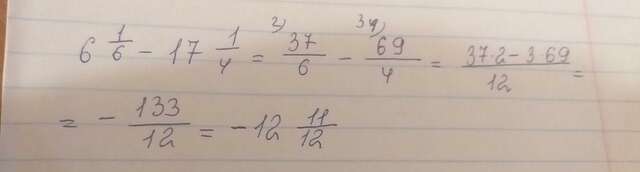 6 1/6 - 17 1/4 = 2) 37/6 - 3) 69/4 = (37·2-3·69)/12 =
= - 133/12 = -12 11/12